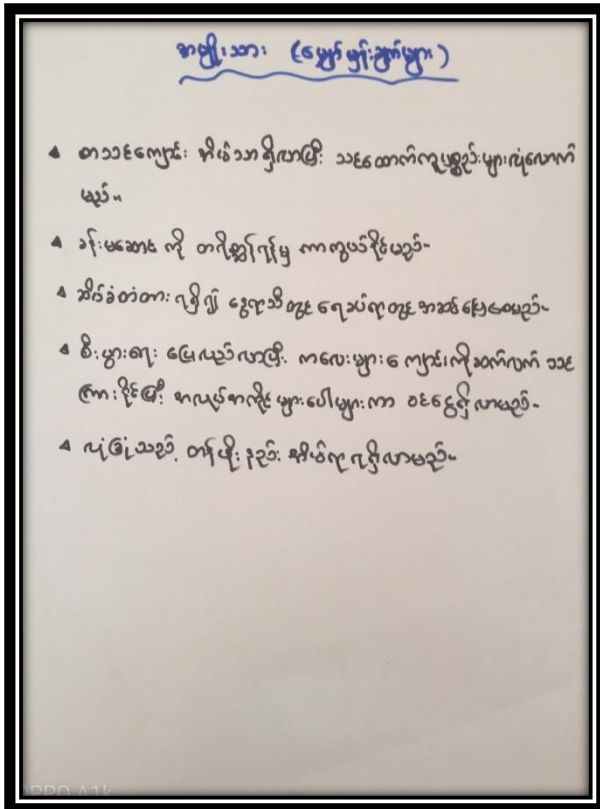 အမျိုးသား (မျှော်မှန်းချက်များ)
▲ စာသင်ကျောင်း အိမ်သာရှိလာပြီး သင်ထောက်ကူပစ္စည်းများလုံလောက်
မည်။
▲ ခန်းမဆောင် ကို တရိစ္ဆာန်ရန်မှ ကာကွယ်နိုင်မည်။
▲ ဆိပ်ခံတံတား ရရှိ၍ နွေရာသီတွင် ရေခပ်ရာတွင် အဆင်ပြေစေမည်။
▲ စီးပွားရေး ပြေလည်လာပြီး ကလေးများ ကျောင်းကိုဆက်လက် သင်
ကြားနိုင်ပြီး အလုပ်အကိုင်များပေါများကာ ဝင်ငွေရှိလာမည်။
▲ လုံခြုံသည့် တန်ဖိုးနည်း အိမ်ရာ ရရှိလာမည်။
OPPO A1k